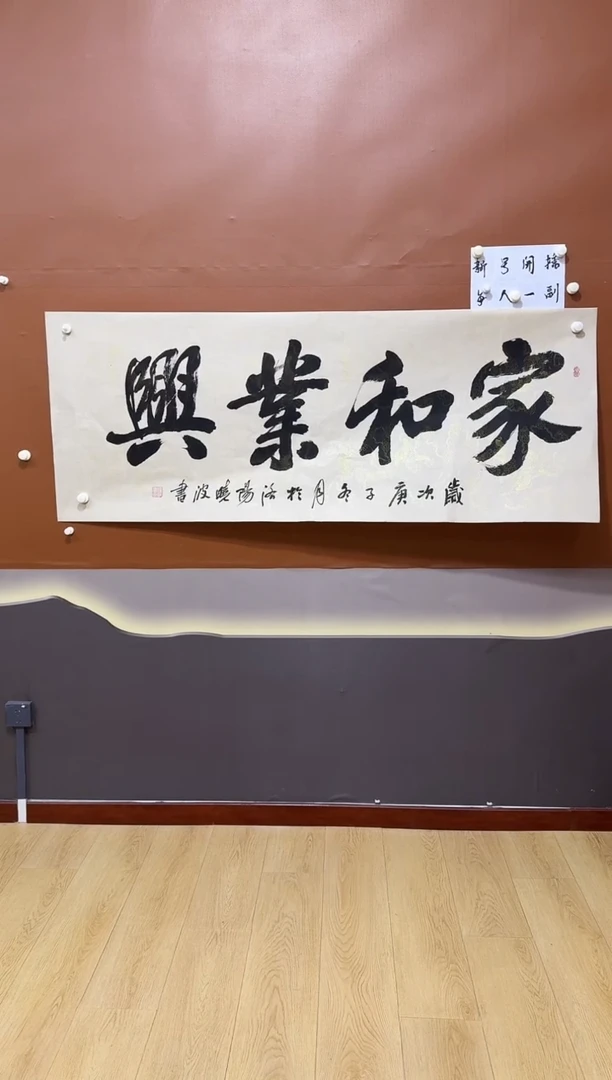 新号開播
每人一副
家和業興
歲次庚子冬月於洛陽曉波書